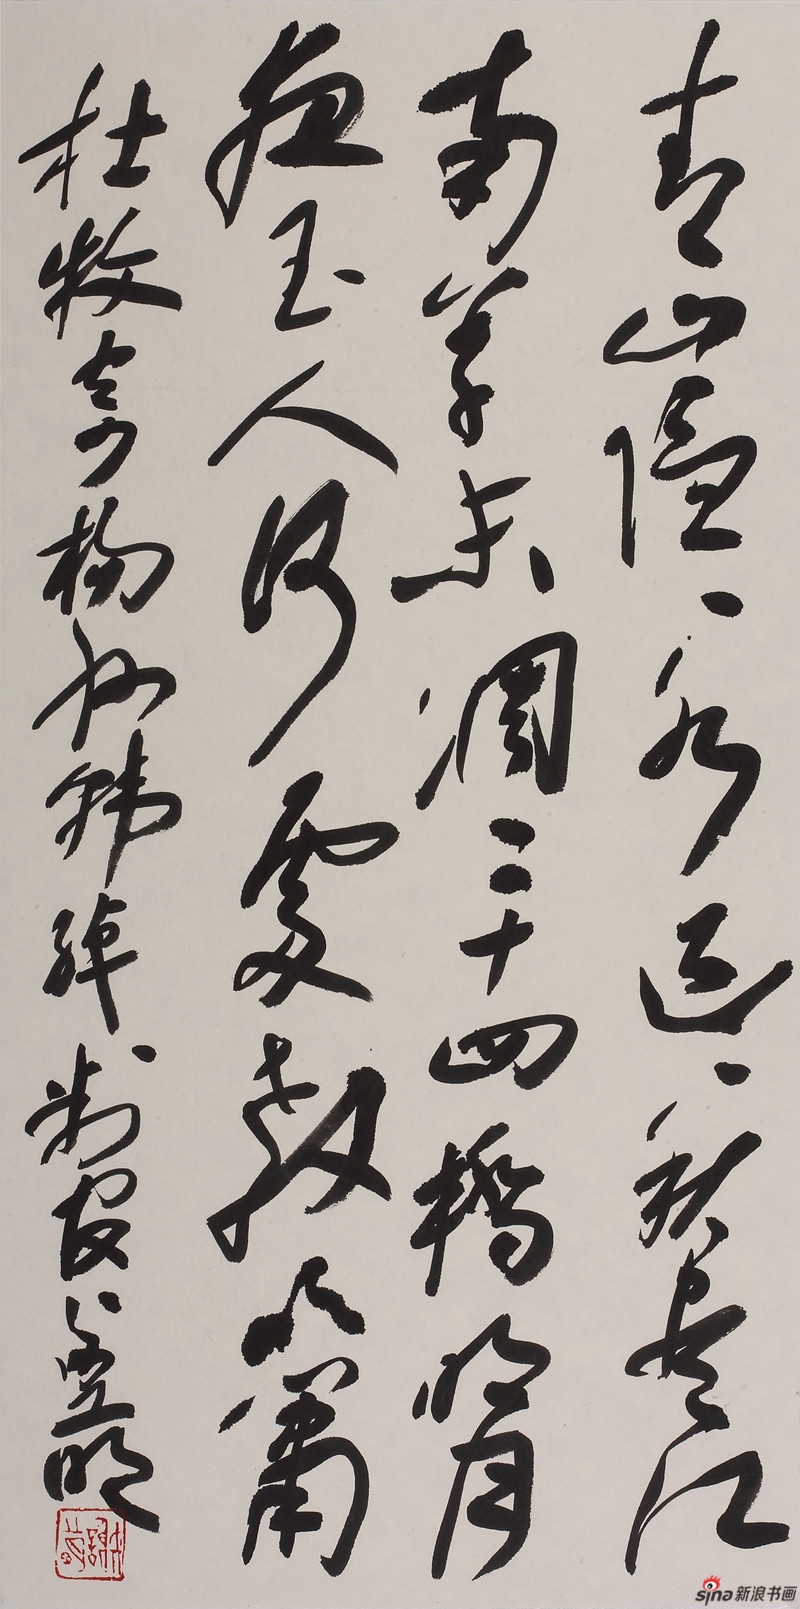 青山隐〻水迢〻秋尽江
南草未凋二十四橋明月
夜玉人何處教吹簫
杜牧寄楊州韓綽判官
sina新浪书画